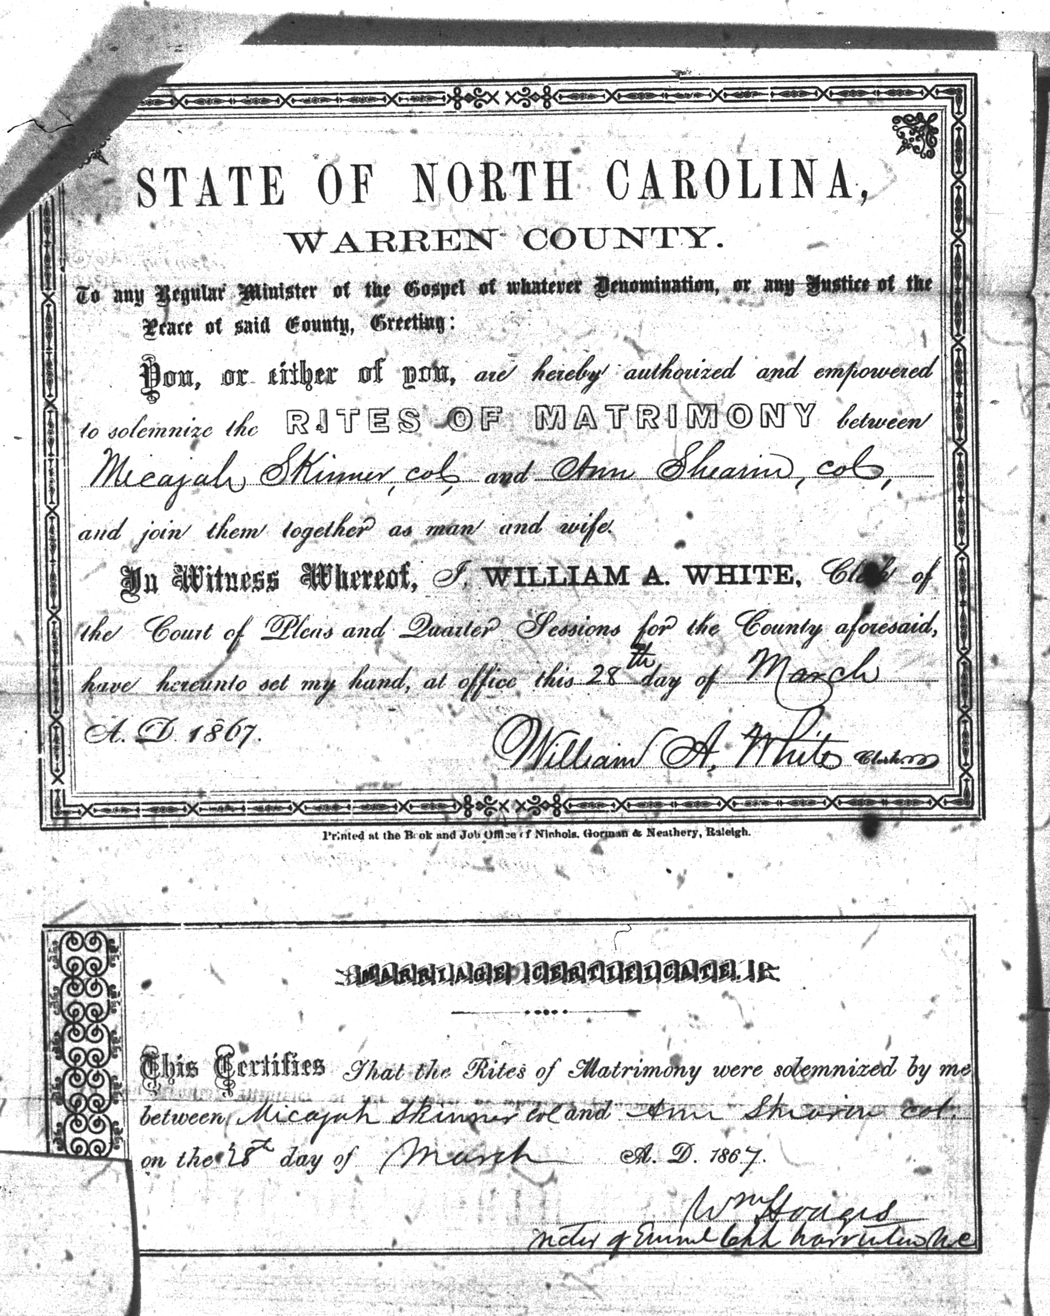 STATE OF NORTH CAROLINA,
WARREN COUNTY.
To any Regular Minister of the Gospel of whatever Denomination, or any Justice of the
Peace of said County, Greeting:
You, or either of you, are hereby authorized and empowered
to solemnize the RITES OF MATRIMONY between
Micajah Skinner, col, and Ann Shearin, col,
and join them together as man and wife.
In Witness Whereof, I, WILLIAM A. WHITE, Clerk of
the Court of Pleas and Quarter Sessions for the County aforesaid,
have hereunto set my hand, at office this 28th day of March
A. D. 1867.
William A. White Clerk
Printed at the Book and Job Office of Nichols, Gorman & Neathery, Raleigh.
MARRIAGE CERTIFICATE.
This Certifies That the Rites of Matrimony were solemnized by me
between Micajah Skinner col and Ann Shearin col.
on the 28th day of March A. D. 1867.
Wm Hodges
of N C